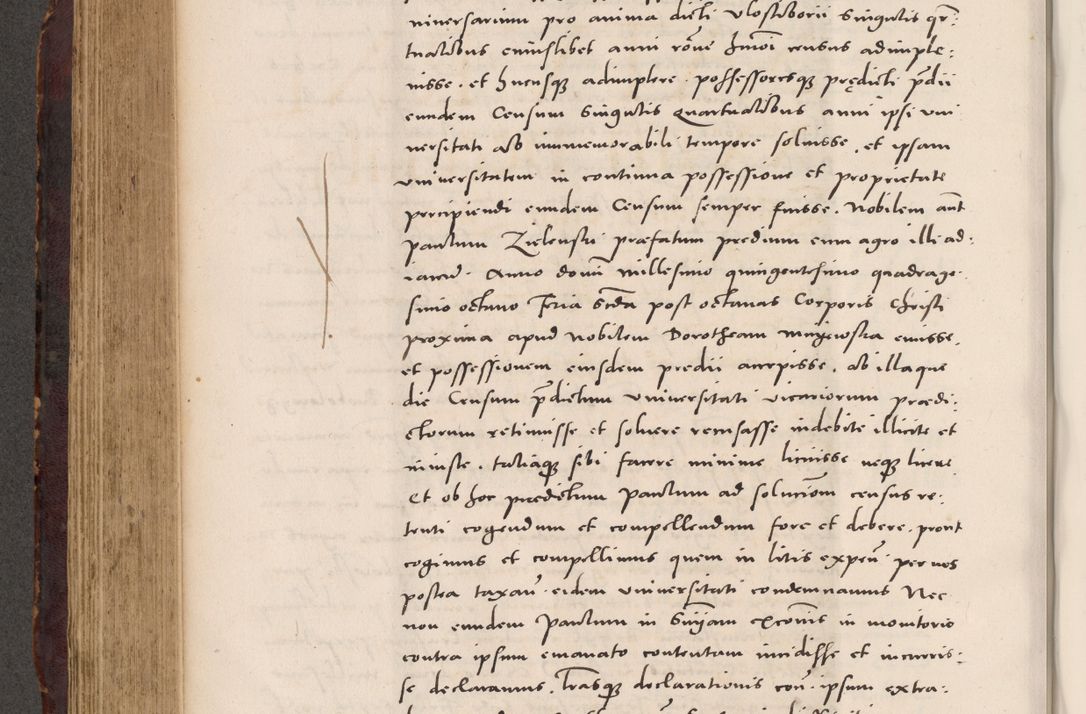 niversarium pro anima dicti Vlostiborii Singulis qr̃:
tualibus cuiuslibet anni rõne hmõi census adimple:
uisse. et hucusq̃ adimplere. possessoresq̃ prędicti p̃dii
eundem Censum Singulis Quartualibus anni ipsi uni
uersitati ab immemorabili tempore soluisse, et ipsam
vniuersitatem in continua possessione et proprietate
percipiendi eundem Censum semper fuisse. Nobilem aũt
paulum Zielenski præfatum predium cum agro illi ad:
iaceñ. Anno domĩ millesimo quingentesimo quadrage
simo octauo Feria Scđa post octauas Corporis Christi
proxima apud Nobilem Dorotheam emisse.
et possessionem eiusdem predii accepisse. ab illaque
die Censum p̃dictum Vniuersitati vicariorum prædi:
ctorum retinuisse et soluere recusasse indebite illicite et
iniuste. taliaq̃ sibi facere minime licuisse neq̃ licere
Et ob hoc predictum paulum ad soluciõm census re:
tenti cogendum et compellendum fore et debere. prout
cogimus et compellimus quem in litis expeñ per nos
postea taxañ eidem vniuersitati condemnamus Nec
non eundem paulum in Sniam excõis in monitorio
contra ipsum emanato contentam incidisse et incurris:
se declaramus. Lrasq̃ declarationis coñ ipsum extra: